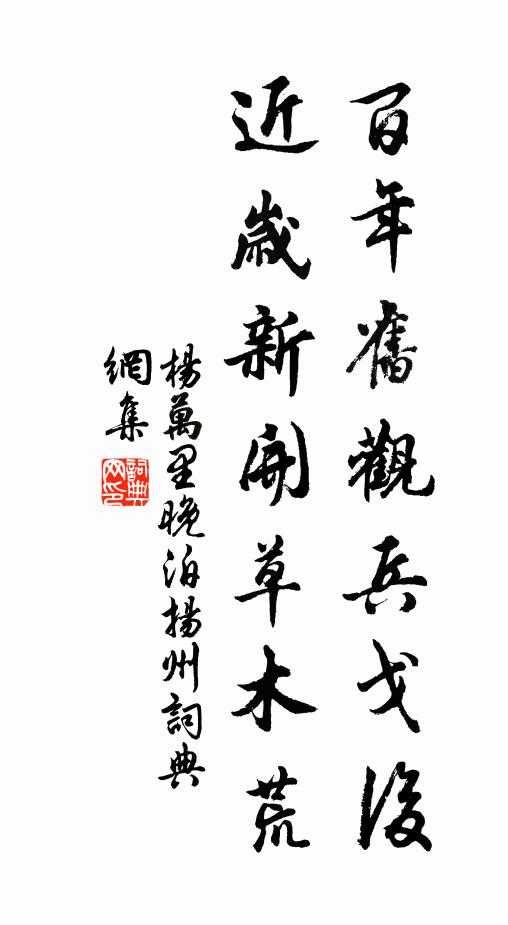 百年舊觀兵戈後
近歲新開草木荒
楊萬里晚泊揚州詞典
網集
詞典
网印